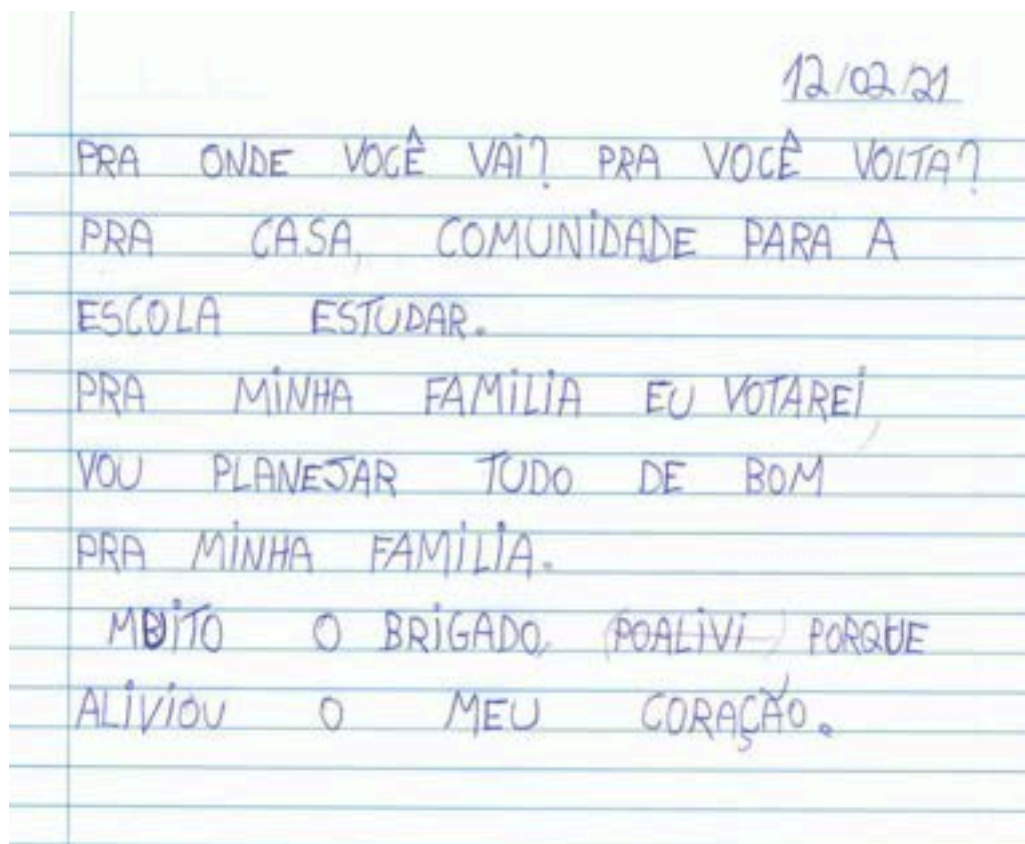 12/02/21
PRA ONDE VOCÊ VAI? PRA VOCÊ VOLTA?
PRA CASA, COMUNIDADE PARA A
ESCOLA ESTUDAR.
PRA MINHA FAMILIA EU VOTAREI,
VOU PLANEJAR TUDO DE BOM
PRA MINHA FAMILIA.
MUITO O BRIGADO, (POALIVI) PORQUE
ALIVIOU O MEU CORAÇÃO.